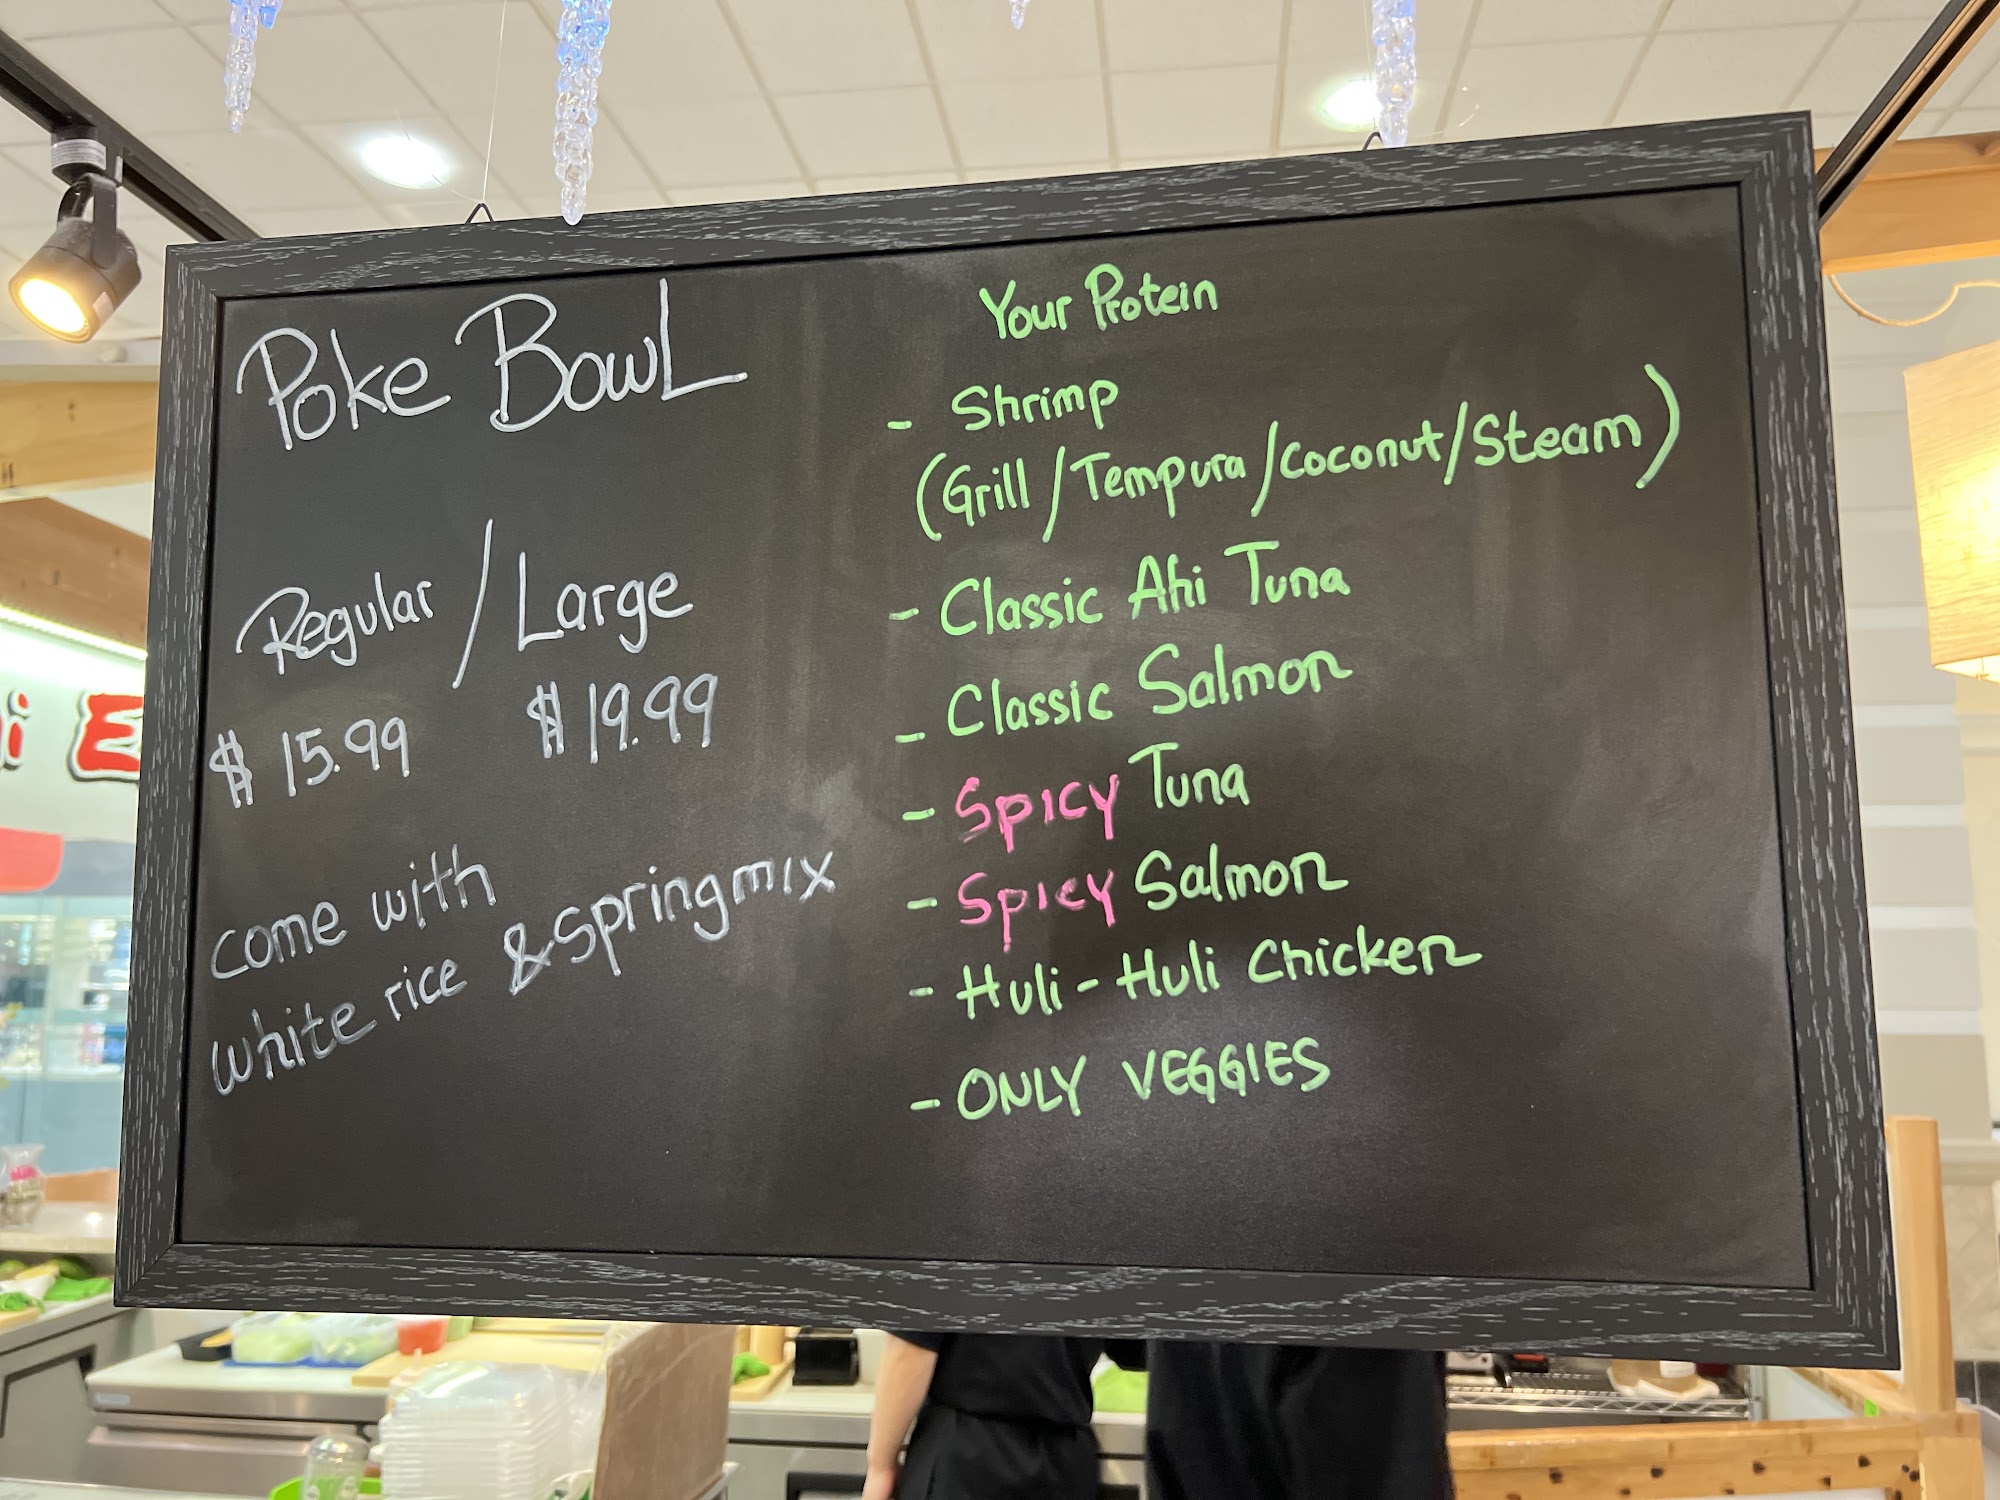 Poke Bowl
Regular / Large
$15.99 $19.99
come with
white rice & springmix
Your Protein
- Shrimp
(Grill/Tempura/coconut/Steam)
- Classic Ahi Tuna
- Classic Salmon
- Spicy Tuna
- Spicy Salmon
- Huli-Huli Chicken
- ONLY VEGGIES